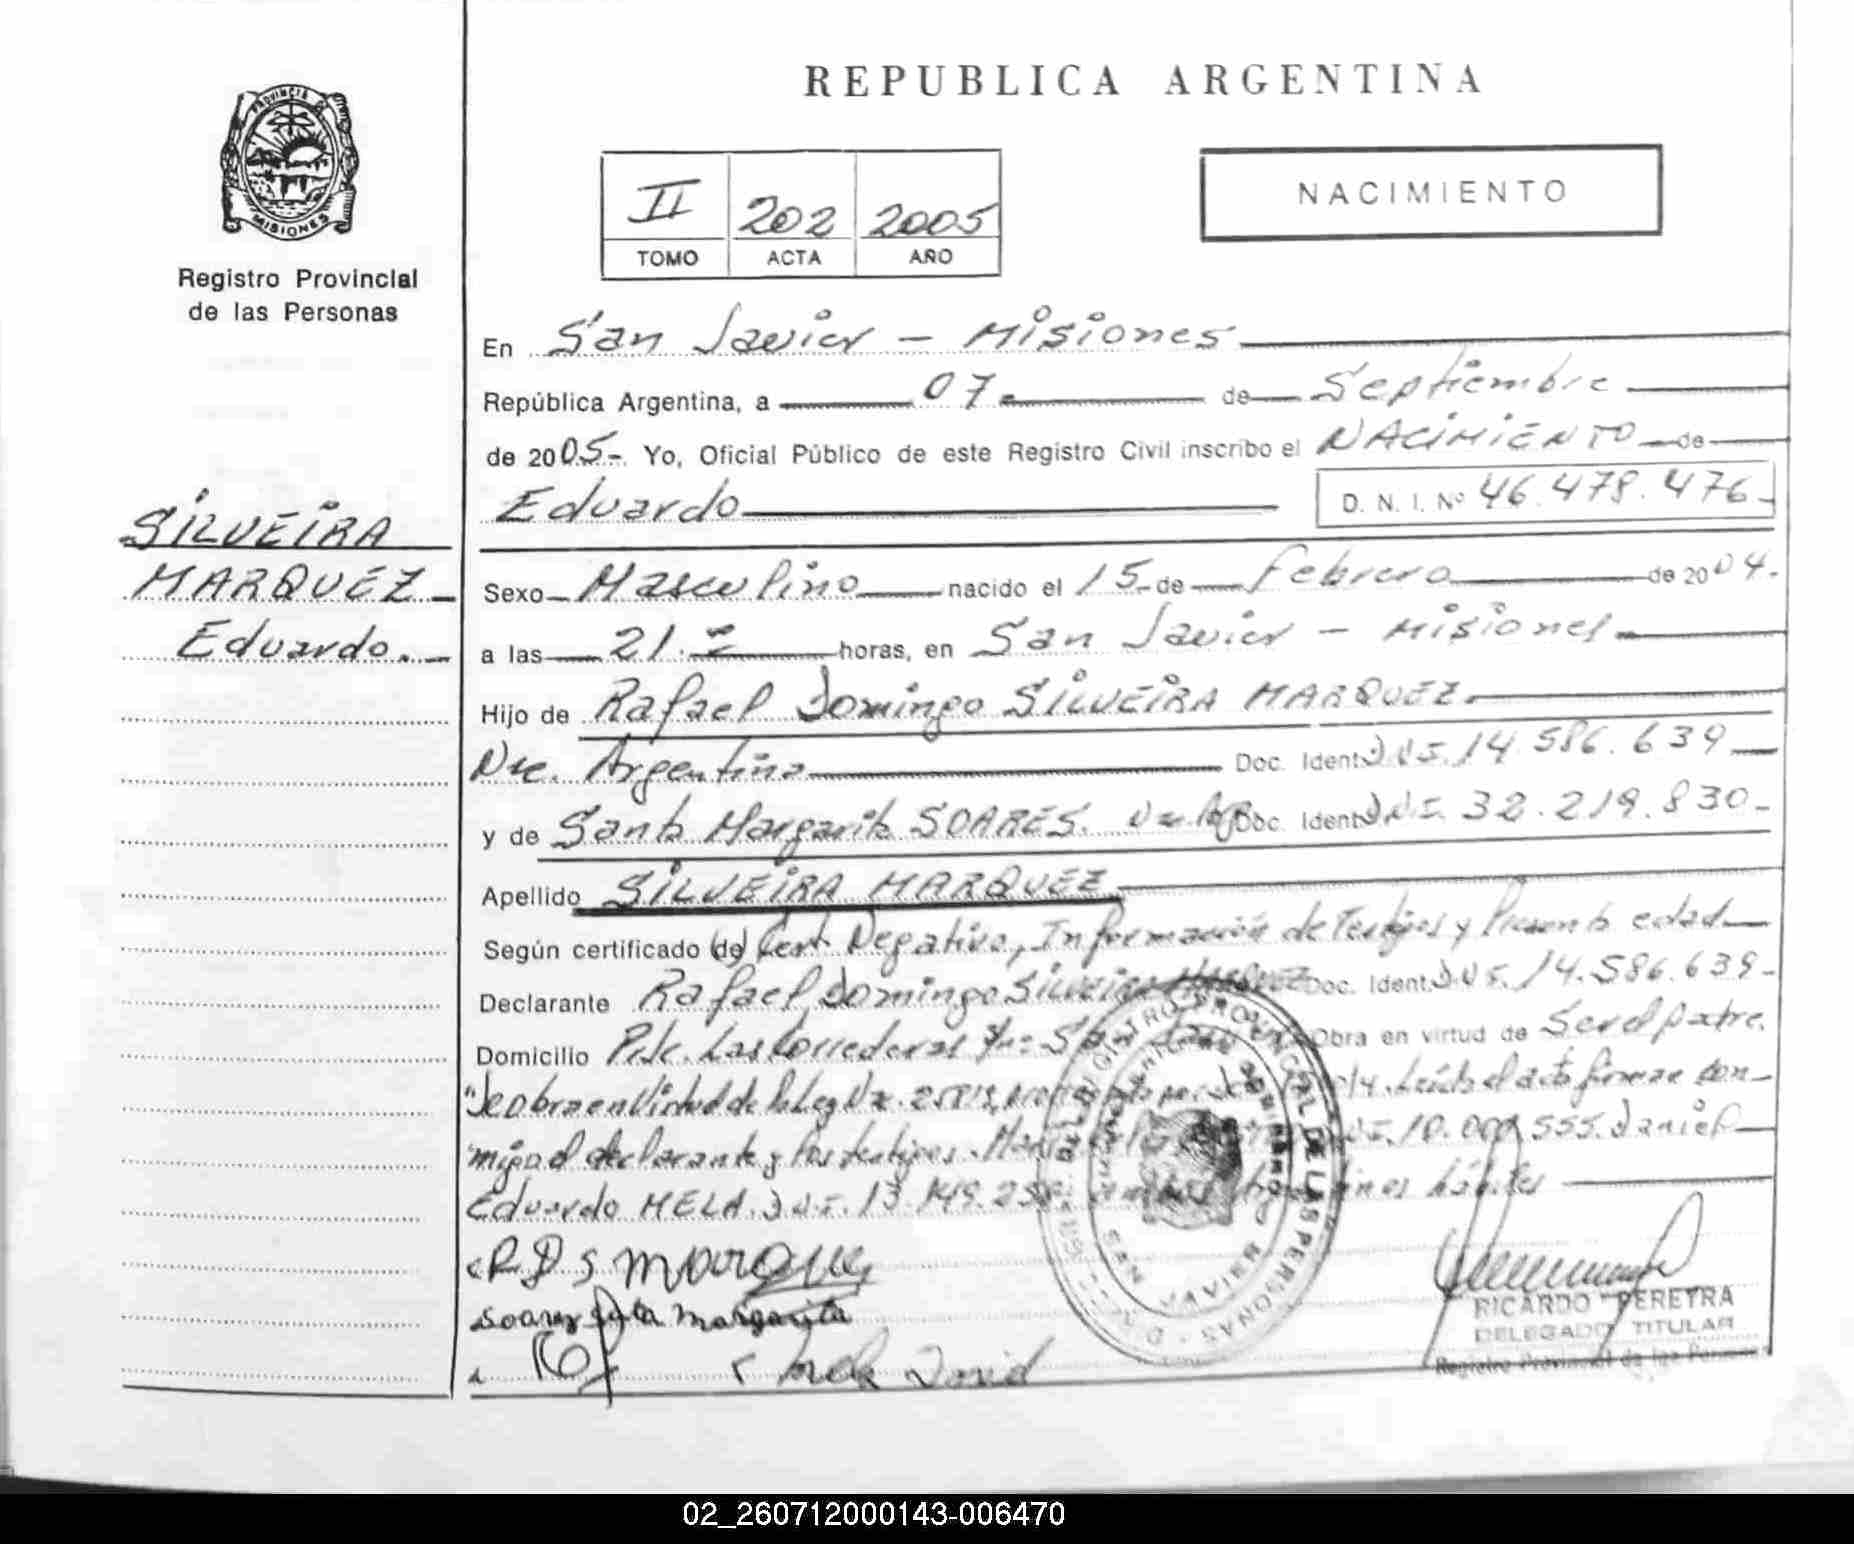 REPUBLICA ARGENTINA
PROVINCIA DE MISIONES
Registro Provincial
de las Personas
II 202 2005
TOMO ACTA AÑO
NACIMIENTO
En San Javier - Misiones
República Argentina, a 07 de Septiembre
de 2005- Yo, Oficial Público de este Registro Civil inscribo el NACIMIENTO de
Eduardo D. N. I. Nº 46.478.476-
SILVEIRA
MARQUEZ
Eduardo.
Sexo Masculino nacido el 15 de Febrero de 2004.
a las 21. horas, en San Javier - Misiones
Hijo de Rafael Domingo SILVEIRA MARQUEZ
Nac. Argentino Doc. Ident. DNI. 14.586.639
y de Santa Margarita SOARES. Doc. Ident. DNI. 32.219.830-
Apellido SILVEIRA MARQUEZ
Según certificado (de) Cert. Negativo, Información de Testigos y Presunta edad
Declarante Rafael Domingo Silveira Marquez Doc. Ident. DNI. 14.586.639-
Domicilio Las Correderas Obra en virtud de Ser el padre.
"Se obra en Virtud de la Ley Leída el acta firman con-
migo el declarante y los testigos. 555. Daniel
Eduardo MELA. DNI. 13.149. hábiles
R D S Marquez
Soarez Santa Margarita
David
REGISTRO PROVINCIAL DE LAS PERSONAS
SAN JAVIER MISIONES
RICARDO PEREYRA
DELEGADO TITULAR
Registro Provincial de las Personas
02_260712000143-006470